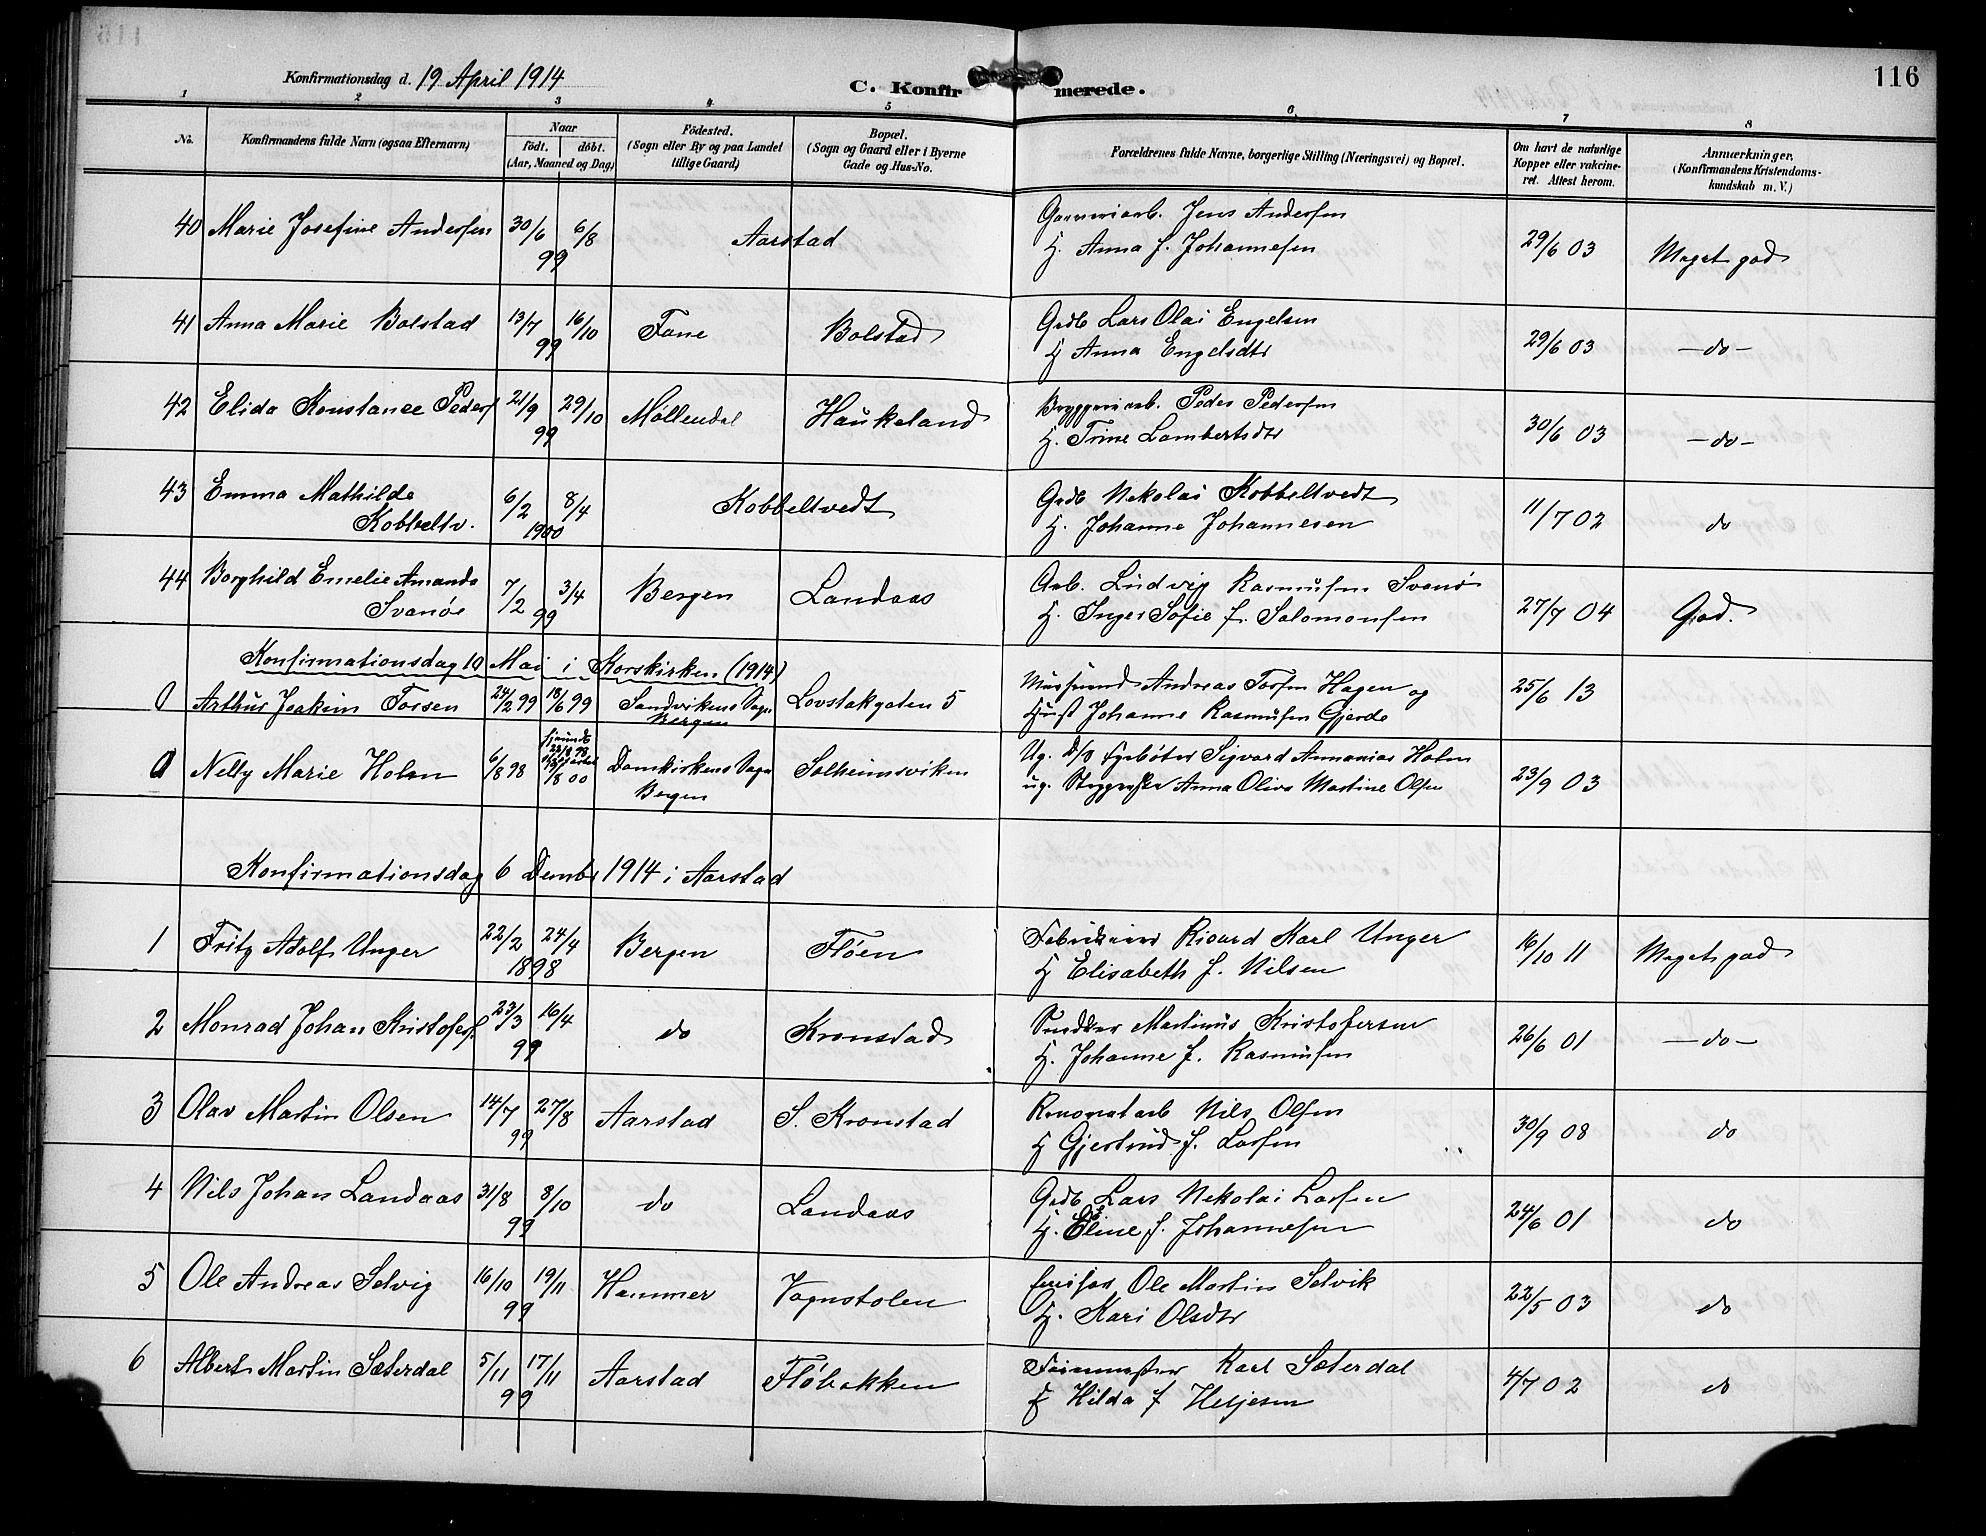 116
Konfirmationsdag d. 19 April 1914
C. Konfirmerede.
1 2 3 4 5 6 7 8
No. Konfirmandens fulde Navn (ogsaa Efternavn) Naar født. døbt. (Aar, Maaned og Dag) Fødested. (Sogn eller By og paa Landet tillige Gaard) Bopæl. (Sogn og Gaard eller i Byerne Gade og Hus-No. Forældrenes fulde Navne, borgerlige Stilling (Næringsvei) og Bopæl. Om havt de naturlige Kopper eller vakcineret. Attest herom. Anmærkninger. (Konfirmandens Kristendomskundskab m. V.)
40 Marie Josefine Andersen 30/6 6/8 99 Aarstad Jens Andersen 29/6 03 Meget god
H. Anna f. Johannesen
41 Anna Marie Bolstad 13/7 16/10 99 Fane Bolstad Grdb Lars Olai Engelsen 29/6 03 —do—
H Anna Engelsdtr
42 Elida Konstance Peders 21/9 29/10 99 Møllendal Haukeland Bryggeriarb. Peder Pedersen 30/6 03 —do—
H. Trine Lambertsdtr
43 Emma Mathilde Kobbeltv. 6/2 8/4 1900 Kobbeltvedt Grdb Nikolai Kobbeltvedt 11/7 02 do
H. Johanne Johannesen
44 Borghild Emelie Amanda Svanøe 7/2 3/4 99 Bergen Landaas Arb. Ludvig Rasmusen Svanø 27/7 04 God.
H. Inger Sofie f. Salomonsen
Konfirmationsdag 10 Mai i Korskirken (1914)
0 Arthur Joakim Torsen 24/2 99 18/6 99 Sandvikens Sogn Bergen Lovstakgaten 5 Andreas Torsen Hagen og 25/6 13
Hust Johanne Rasmusen Gjerde
0 Nelly Marie Holm 6/8 98 19/8 00 Domkirkens Sogn Bergen Solheimsviken Ug. D/S Fyrbøter Sigvard Annanias Holm 23/9 03
ug. Anna Oliva Martine Olsen
Konfirmationsdag 6 Dembr 1914 i Aarstad
1 Fritz Adolf Unger 22/2 24/4 1898 Bergen Fløen Ricard Karl Unger 16/10 11 Meget god
H Elisabeth f. Nilsen
2 Monrad Johan Kristofers 23/3 16/4 99 do Kronstad Snedker Martinus Kristofersen 26/6 01 —do—
H. Johanne f. Rasmusen
3 Olav Martin Olsen 14/7 27/8 99 Aarstad S. Kronstad Renovatarb Nils Olsen 30/9 08 do
H Gjertrud f. Larsen
4 Nils Johan Landaas 31/8 8/10 99 do Landaas Grdb Lars Nikolai Larsen 24/6 01 do
H. Eline f. Johannesen
5 Ole Andreas Selvig 16/10 19/11 99 Hammer Vognstolen Ole Martin Selvik 22/5 03 do
H. Kari Olsdtr
6 Albert Martin Sæterdal 5/11 17/11 99 Aarstad Fløbakken Karl Sæterdal 4/7 02 do
H Hilda f Hesjesen